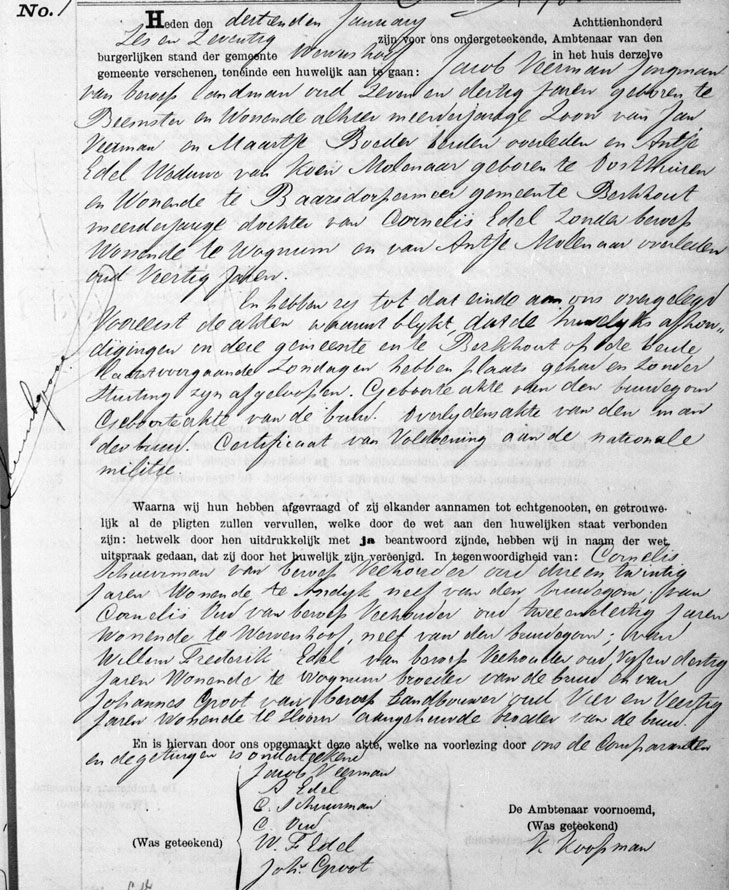 No. 1
Heden den dertienden January Achttienhonderd
Zes en Zeventig zijn voor ons ondergeteekende, Ambtenaar van den
burgerlijken stand der gemeente Wervershoof in het huis derzelve
gemeente verschenen, teneinde een huwelijk aan te gaan: Jacob Veerman Jongman
van beroep Landman oud Zeven en dertig Jaren geboren te
Beemster en Wonende alhier meerderjarige Zoon van Jan
Veerman en Maartje Boeder beiden overleden en Antje
Edel Weduwe van Koen Molenaar geboren te Oosthuizen
en Wonende te Baarsdorpermeer gemeente Berkhout
meerderjarige dochter van Cornelis Edel Zonder beroep
Wonende te Wognum en van Antje Molenaar overleden
oud Veertig Jaren.
En hebben zy tot dat einde aan ons overgelegd
Vooreerst de achten waaruit blykt, dat de huwelyks afkon-
digingen in deze gemeente en te Berkhout op de beide
laatstvoorgaande Zondagen hebben plaats gehad en Zonder
Stuiting zyn afgeloopen. Geboorte akte van den bruidegom
Geboorte akte van de bruid. Overlydensakte van den man
der bruid. Certificaat van Voldoening aan de nationale
militie.
Waarna wij hun hebben afgevraagd of zij elkander aannamen tot echtgenooten, en getrouwe-
lijk al de pligten zullen vervullen, welke door de wet aan den huwelijken staat verbonden
zijn: hetwelk door hen uitdrukkelijk met ja beantwoord zijnde, hebben wij in naam der wet
uitspraak gedaan, dat zij door het huwelijk zijn vereenigd. In tegenwoordigheid van: Cornelis
Schuurman van beroep Veehouder oud drie en twintig
Jaren Wonende te Andyk neef van den bruidegom; van
Cornelis Oud van beroep Veehouder oud twee en dertig Jaren
Wonende te Wervershoof, neef van den bruidegom; van
Willem Frederik Edel van beroep Veehouder oud Vyf en dertig
Jaren Wonende te Wognum broeder van de bruid en van
Johannes Groot van beroep Landbouwer oud Vier en Veertig
Jaren Wonende te Hoorn aangehuwde broeder van de bruid.
En is hiervan door ons opgemaakt deze akte, welke na voorlezing door ons de Comparanten
en de getuigen is onderteekend
Jacob Veerman
A Edel
C. Schuurman
C. Oud
W. F. Edel
Johs Groot
(Was geteekend)
De Ambtenaar voornoemd,
(Was geteekend)
K. Koopman